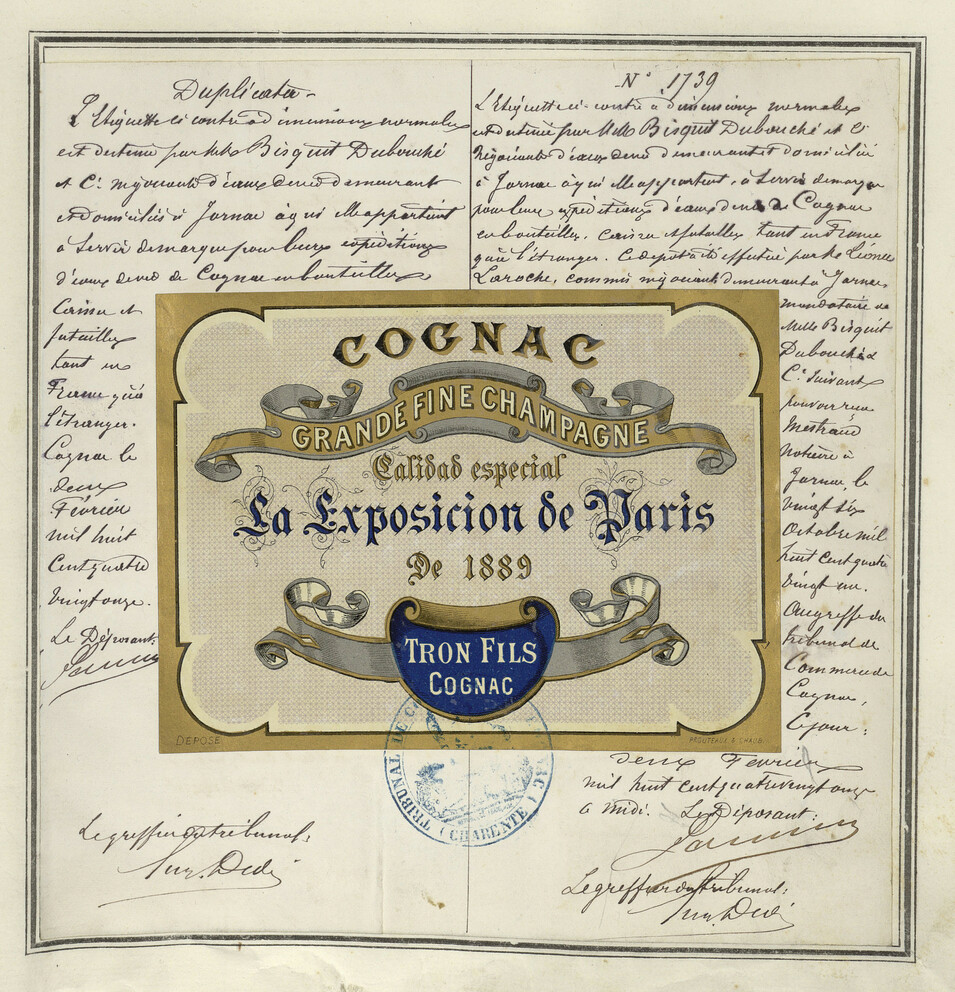 Duplicata -
L'Etiquette ci contre à dimensions normales
est destinée par MM Bisquit Dubouché
et Cie négociants d'eaux de vie demeurant
et domiciliés à Jarnac à qui elle appartient
à servir de marque pour leurs expéditions
d'eaux de vie de Cognac en bouteilles
Caisses et
futailles
tant en
France qu'à
l'étranger.
Cognac le
deux
Février
mil huit
cent quatre
vingt onze.
Le Déposant
Le greffier du tribunal:
N° 1739
L'Etiquette ci-contre à dimensions normales
est destinée par MM Bisquit Dubouché et Cie
négociants d'eaux de vie demeurant et domiciliés
à Jarnac à qui elle appartient, à servir de marque
pour leurs expéditions d'eaux de vie de Cognac
en bouteilles, caisses et futailles tant en France
qu'à l'étranger. Ce dépôt a été effectué par Mr Léonce
Laroche, commis négociant demeurant à Jarnac
mandataire de
MM Bisquit
Dubouché &
Cie suivant
pouvoir reçu
Mestraud
Notaire à
Jarnac, le
vingt six
Octobre mil
huit cent quatre
vingt un.
Au greffe du
tribunal de
Commerce de
Cognac,
Ce jour:
deux Février
mil huit cent quatre vingt onze
à midi. Le Déposant:
Le greffier du tribunal:
COGNAC
GRANDE FINE CHAMPAGNE
Calidad especial
La Exposicion de Paris
De 1889
TRON FILS
COGNAC
DEPOSÉ
TRIBUNAL DE
(CHARENTE)